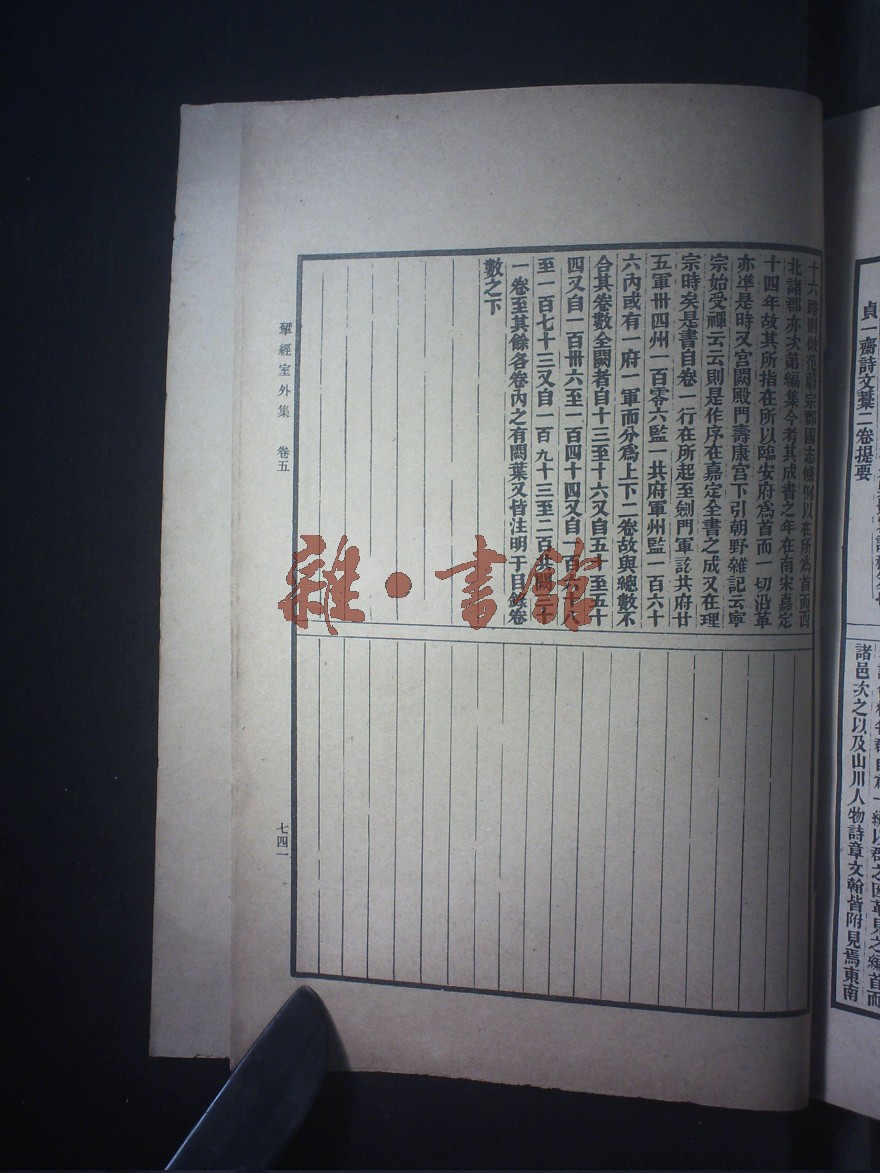 貞一齋詩文藳二卷提要
諸邑次之以及山川人物詩章文翰皆附見焉東南
十六路則倣范蔚宗郡國志條例以在所爲首而西
北諸郡亦次第編集今考其成書之年在南宋嘉定
十四年故其所指在所以臨安府爲首而一切沿革
亦準是時又宮闕殿門壽康宮下引朝野雜記云寧
宗始受禪云云則是作序在嘉定全書之成又在理
宗時矣是書自卷一行在所起至劍門軍訖共府廿
五軍卅四州一百零六監一共府軍州監一百六十
六內或有一府一軍而分爲上下二卷故與總數不
合其卷數全闕者自十三至十六又自五十至五十
四又自一百卅六至一百四十四又自一百六十八
至一百七十三又自一百九十三至二百共闕三十
一卷至其餘各卷內之有闕葉又皆注明于目錄卷
數之下
揅經室外集 卷五
七四一
雜·書館